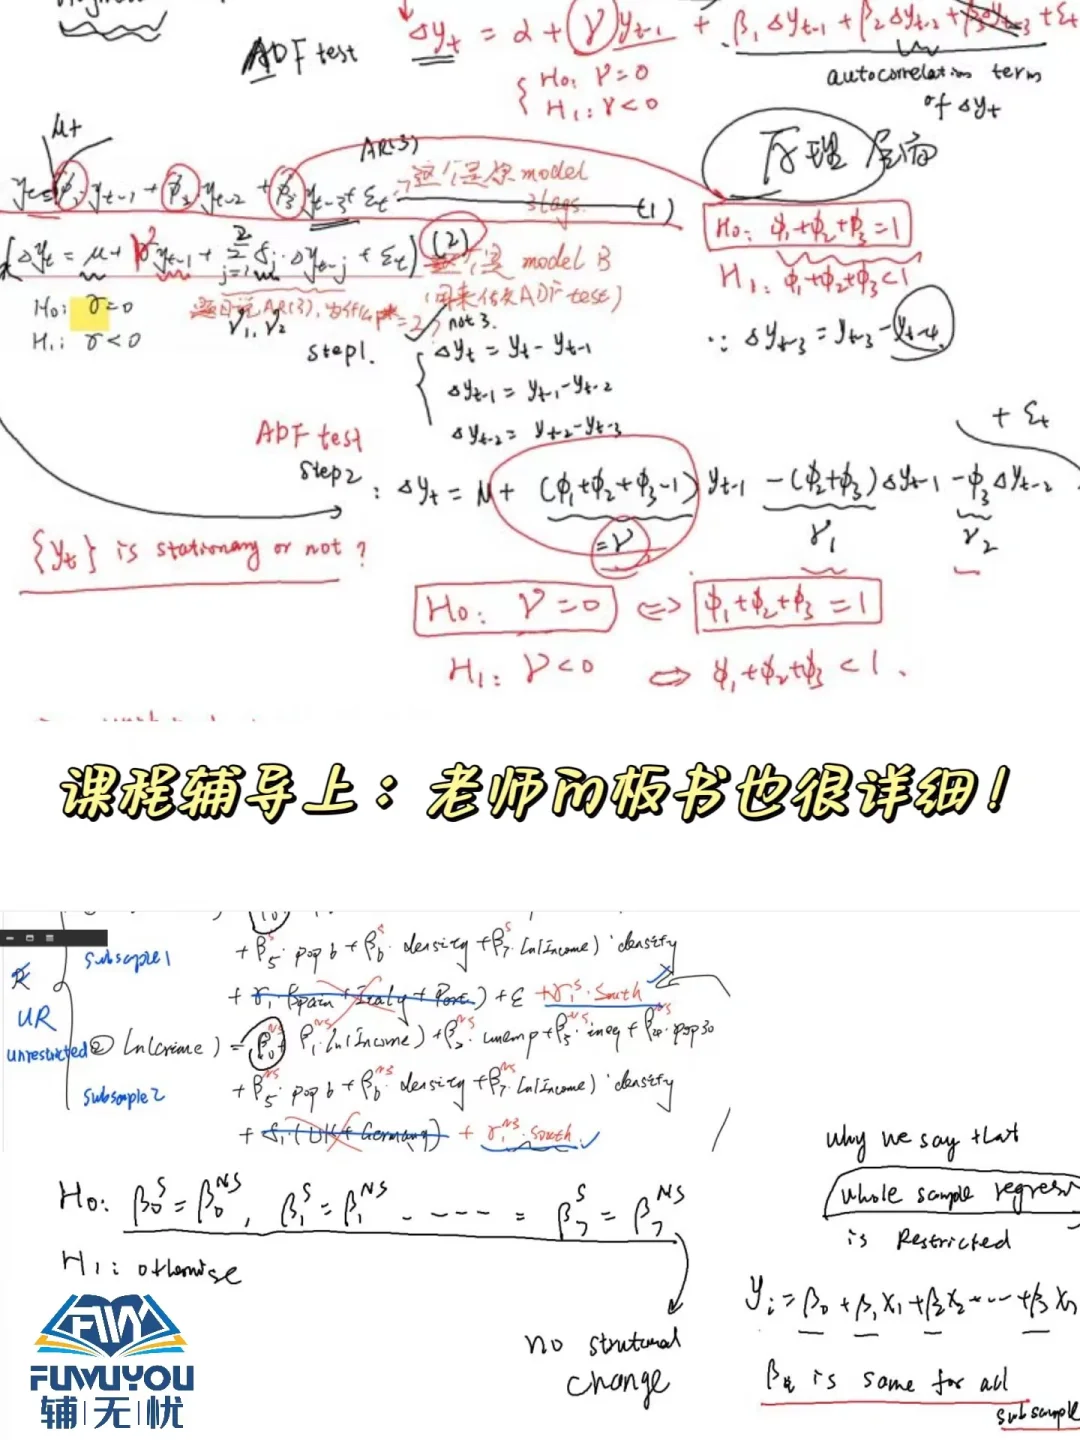 ADF test
Δyt = α + γ yt-1 + β1 Δyt-1 + β2 Δyt-2 + β3 Δyt-3 + εt
{ H0: γ=0
H1: γ<0
autocorrelation term
of Δyt
μ+
AR(3)
原理层面
yt = φ1 yt-1 + φ2 yt-2 + φ3 yt-3 + εt 这个是原 model
3lags. (1)
H0: φ1+φ2+φ3=1
H1: φ1+φ2+φ3<1
(Δyt = μ + γ yt-1 + Σ j=1 2 δj · Δyt-j + εt) (2) 这个是 model B
H0: γ=0
H1: γ<0
题目说AR(3), 为什么p*=2, not 3.
γ1, γ2
(用来做ADF test)
∵ Δyt-3 = yt-3 - yt-4
step1. { Δyt = yt - yt-1
Δyt-1 = yt-1 - yt-2
Δyt-2 = yt-2 - yt-3
ADF test
step2 : Δyt = μ + (φ1+φ2+φ3-1) yt-1 -(φ2+φ3) Δyt-1 - φ3 Δyt-2 + εt
=γ γ1 γ2
{yt} is stationary or not ?
H0: γ=0 ⇔ φ1+φ2+φ3=1
H1: γ<0 ⇔ φ1+φ2+φ3<1.
课程辅导上：老师的板书也很详细！
subsample1
+ β5S · pop6 + β6S · density + β7S ln(Income) · density
+ γ1 · (Spain + Italy + Port) + ε + γ1S · South
R
UR
unrestricted
② ln(crime) = β0NS + β1NS · ln(Income) + β2NS · unemp + β3NS · ineq + β4NS · pop30
subsample2
+ β5NS · pop6 + β6NS · density + β7NS ln(Income) · density
+ δ1 · (UK + Germany) + γ1NS · South
H0: β0S = β0NS, β1S = β1NS - - - - - = β7S = β7NS
H1: otherwise
no structural
change
why we say that
whole sample regress
is Restricted
yi = β0 + β1 X1 + β2 X2 + ··· + β7 X7
is same for all
subsample
FUWUYOU
辅无忧